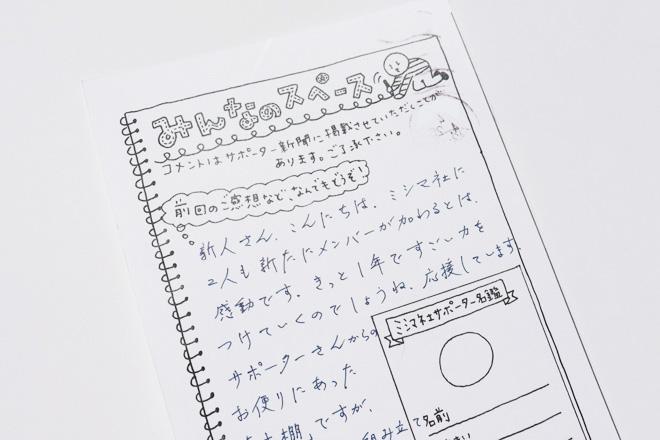 みんなのスペース
コメントはサポーター新聞に掲載させていただくことが
あります。ご了承下さい。
前回のご感想など、なんでもどうぞ!
新人さん、こんにちは。ミシマ社に
2人も新たにメンバーが加わるとは、
感動です。きっと1年ですごい力を
つけていくのでしょうね。応援しています。
サポーターさんからの
お便りにあった
棚」ですが、
組み立て
ミシマ社サポーター名鑑
名前